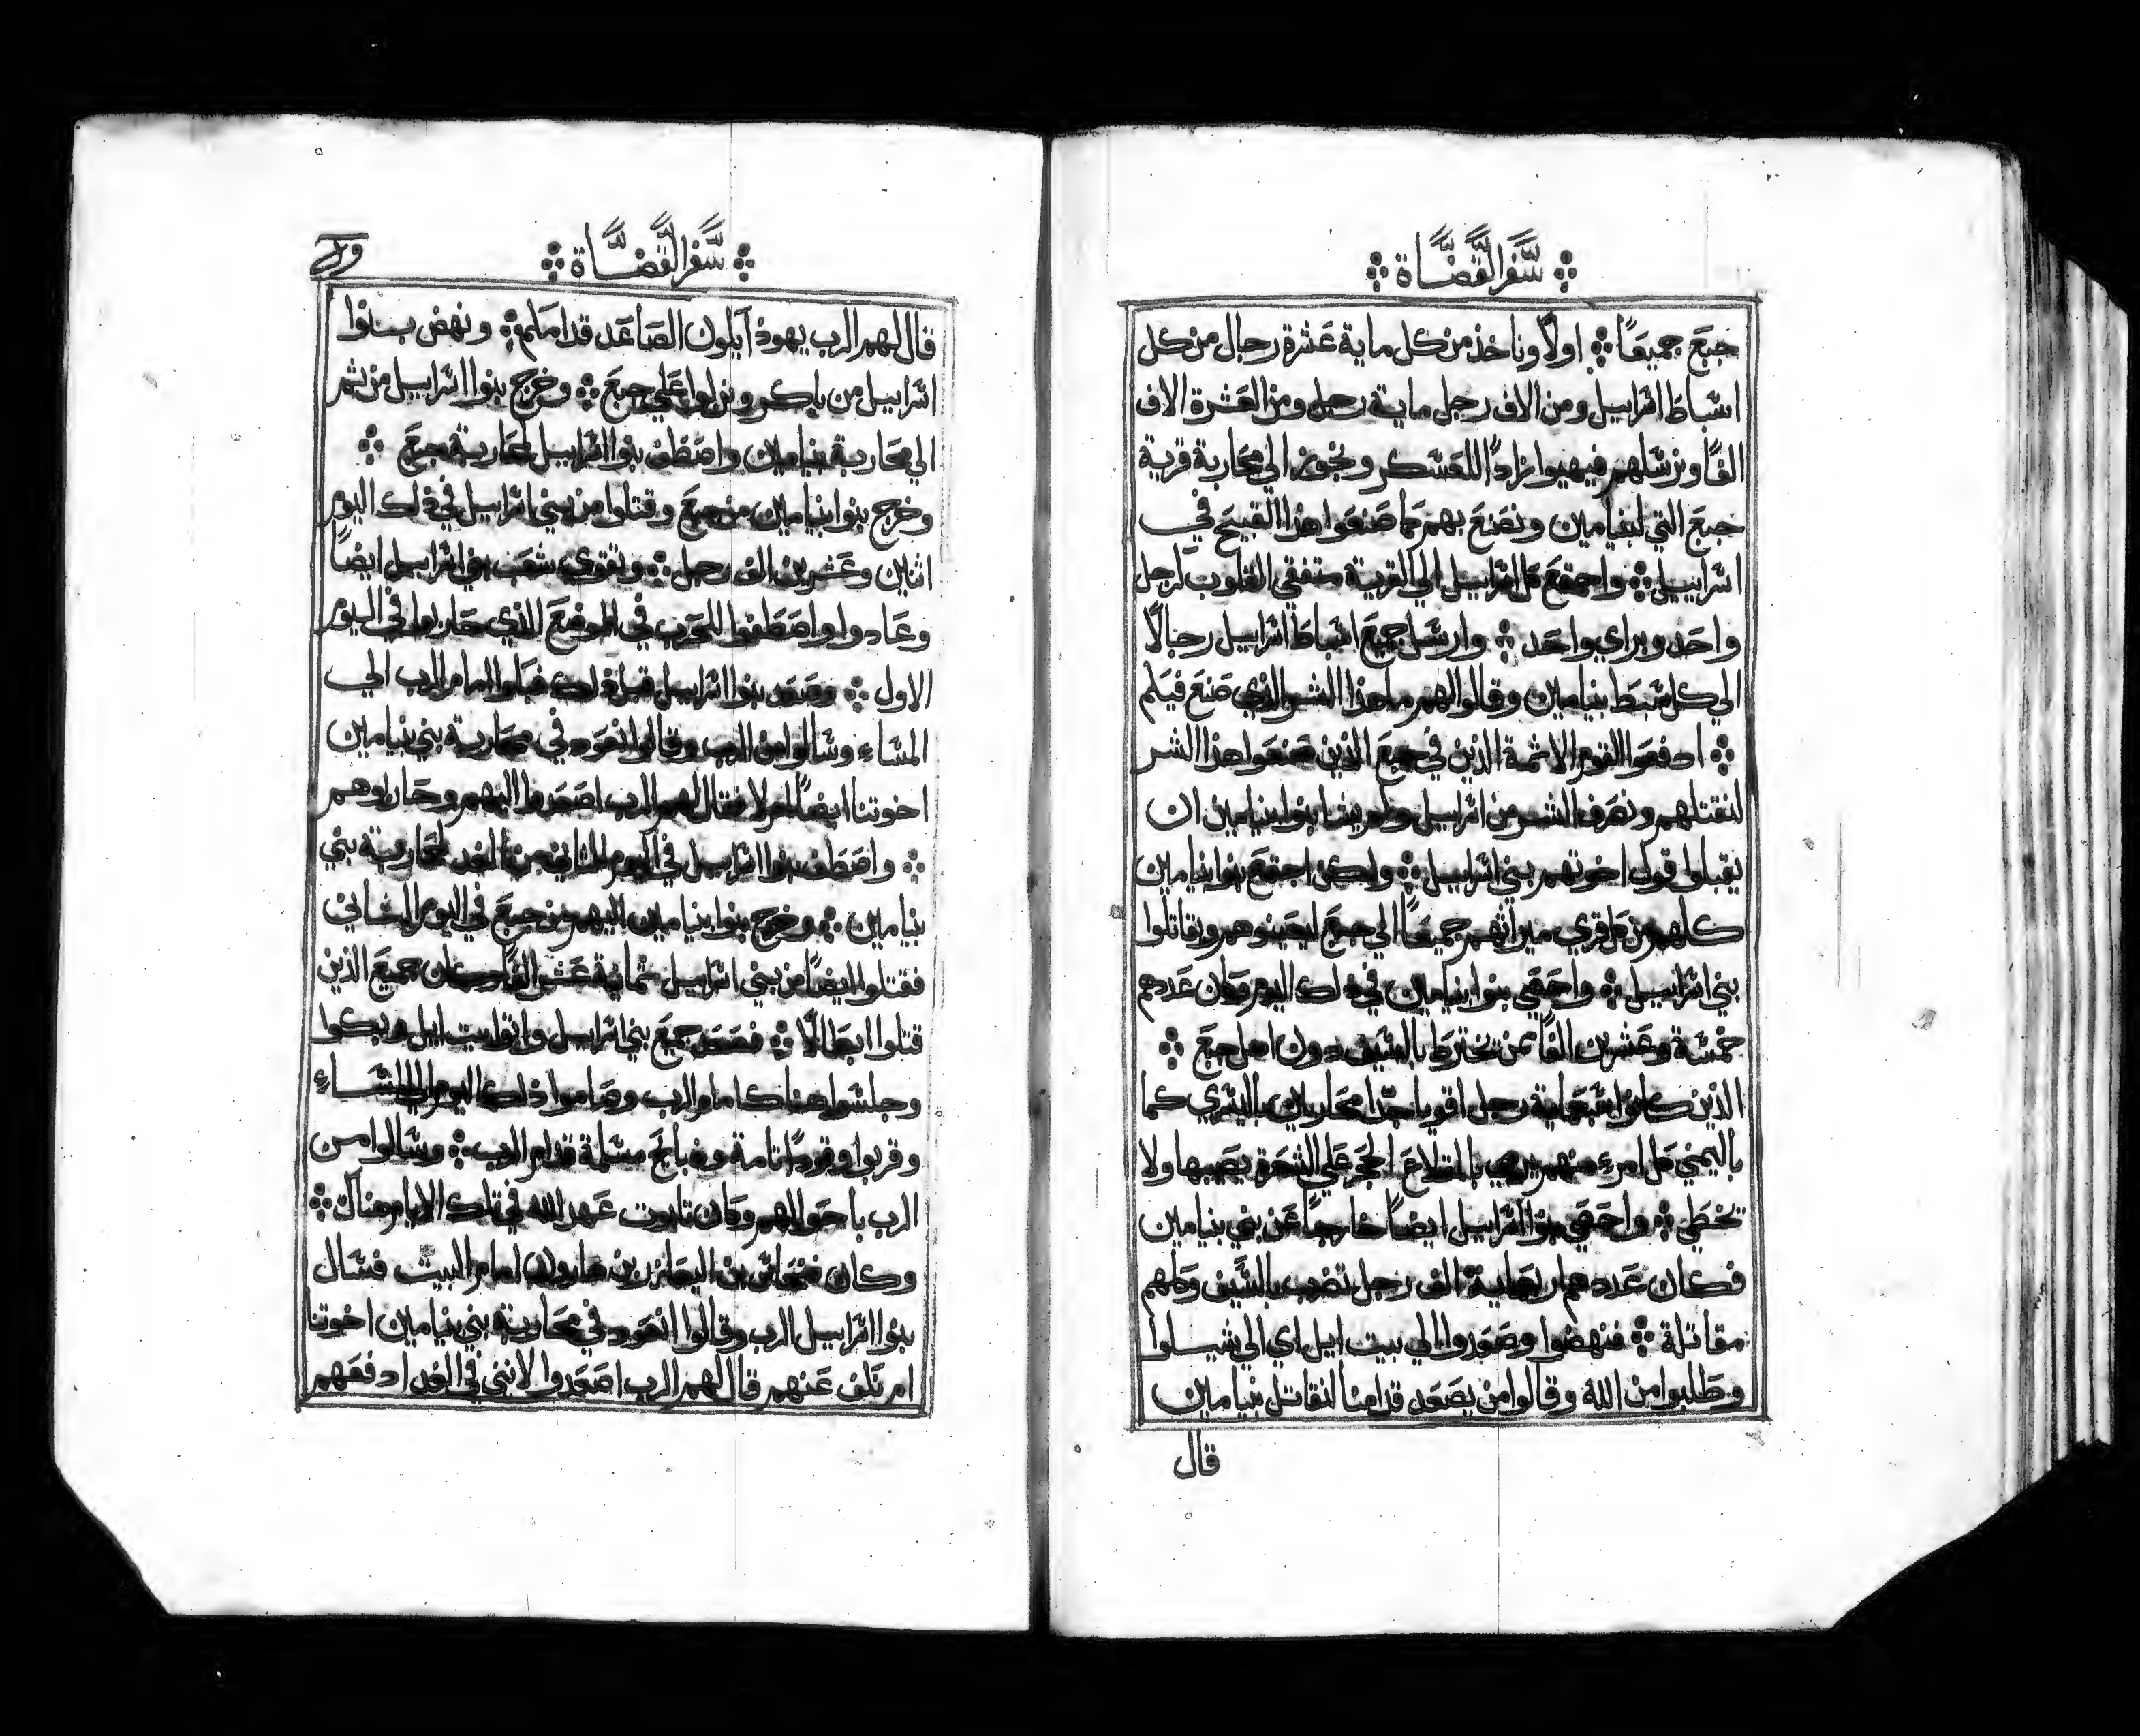 سفر القضاة
جبع جميعًا ۞ اولًا وناخذ من كل ماية عشرة رجال من كل
اسباط اسراييل ومن الاف رجل ماية رجل ومن العشرة الاف
الفًا ونرسلهم فيهيوا زادًا للعسكر ونجوز الي محاربة قرية
جبع التي لبنيامين ونصنع بهم كما صنعوا هذا القبيح في
اسراييل ۞ واجتمع كل اسراييل الي القرية متفقي القلوب كرجل
واحد وبراي واحد ۞ وارسل جميع اسباط اسراييل رجالًا
الي كل سبط بنيامين وقالوا لهم ما هذا الشر الذي صنع فيكم
۞ ادفعوا القوم الاثمة الذين في جبع الذين صنعوا هذا الشر
لنقتلهم ونصرف الشر من اسراييل ولم يشا بنوا بنيامين ان
يقبلوا قول اخوتهم بني اسراييل ۞ ولكن اجتمع بنوا بنيامين
كلهم من كل قري ميراثهم جميعًا الي جبع ليعينوهم ويقاتلوا
بني اسراييل ۞ واحصي بنوا بنيامين في ذلك اليوم وكان عددهم
خمسة وعشرين الفًا ممن يخترط بالسيف دون اهل جبع ۞
الذين كانوا سبعماية رجل اقويا جدًا محاربين باليسري كما
باليمني كل امرء منهم يرمي بالمقلاع الحجر علي الشعرة يصيبها ولا
تخطي ۞ واحصي بنوا اسراييل ايضًا خارجًا عن بني بنيامين
فكان عددهم اربعماية الف رجل تضرب بالسيف وكلهم
مقاتلة ۞ فنهضوا وصعدوا الي بيت ايل اي الي شيلوا
وطلبوا من الله وقالوا من يصعد قدامنا لنقاتل بنيامين
قال
سفر القضاة
قال لهم الرب يهوذا يكون الصاعد قدامكم ۞ ونهض بنوا
اسراييل من باكر ونزلوا علي جبع ۞ وخرج بنوا اسراييل من ثم
الي محاربة بنيامين واصطف بنوا اسراييل لمحاربة جبع ۞
وخرج بنوا بنيامين من جبع وقتلوا من بني اسراييل في ذلك اليوم
اثنين وعشرين الف رجل ۞ وتقوي شعب بني اسراييل ايضًا
وعادوا واصطفوا للحرب في الموضع الذي حاربوا في اليوم
الاول ۞ وصعد بنوا اسراييل قبل ذلك فبكوا امام الرب الي
المساء وسالوا من الرب وقالوا انعود في محاربة بني بنيامين
اخوتنا ايضًا ام لا فقال لهم الرب اصعدوا اليهم وحاربوهم
۞ واصطف بنوا اسراييل في اليوم الثاني من الغد لمحاربة بني
بنيامين ۞ وخرج بنوا بنيامين اليهم من جبع في اليوم الثاني
فقتلوا ايضًا من بني اسراييل ثمانية عشر الفًا وكان جميع الذين
قتلوا ابطالًا ۞ فصعد جميع بني اسراييل واتوا بيت ايل وبكوا
وجلسوا هناك امام الرب وصاموا ذلك اليوم الي المساء
وقربوا وقودًا تامة وذبايح مسلمة قدام الرب ۞ وسالوا من
الرب باحوالهم وكان تابوت عهد الله في تلك الايام هناك ۞
وكان فنحاس بن اليعازر بن هارون امام البيت فسال
بنوا اسراييل الرب وقالوا انعود في محاربة بني بنيامين اخوتنا
ام نكف عنهم قال لهم الرب اصعدوا لانني في الغد ادفعهم